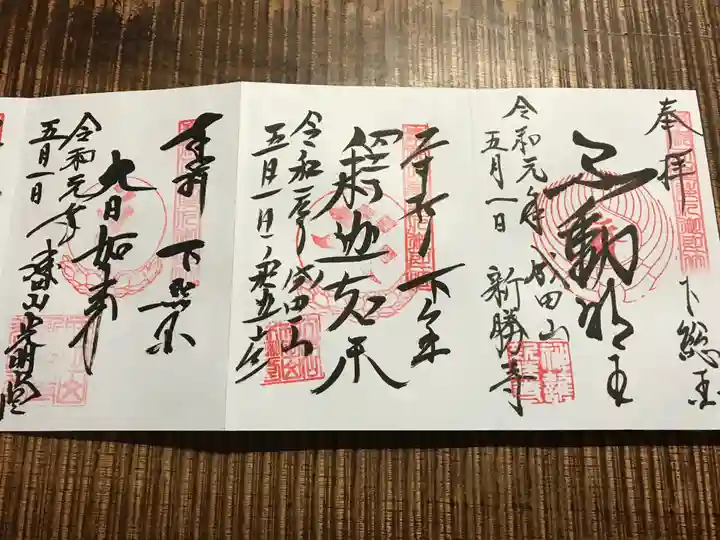 奉拝
下総国
不動明王
令和元年
五月一日
成田山
新勝寺
奉拝
下総国
釋迦如来
令和元年
五月一日
成田山
奉拝
下総国
大日如来
令和元年
五月一日
成田山光明堂